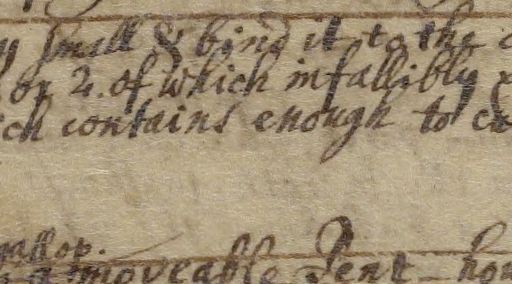 small & bind it to the
or 2. of which infallibly
ich contains enough to
gallop.
a moveable Pent-hou